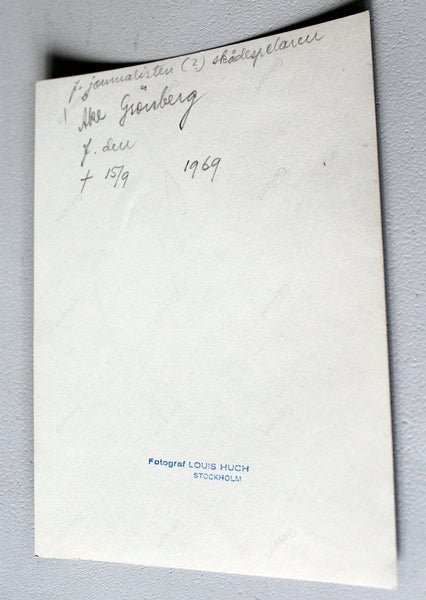 f. journalisten (?) skådespelaren
Åke Grönberg
f. den
† 15/9 1969
Fotograf LOUIS HUCH
STOCKHOLM